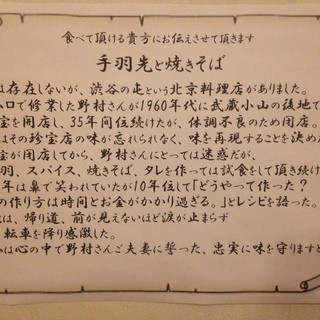 食べて頂ける貴方にお伝えさせて頂きます
手羽先と焼きそば
は存在しないが、渋谷の屯という北京料理店がありました。
ムロで修業した野村さんが1960年代に武蔵小山の後地で
宝を開店し、35年間位続けたが、体調不良のため閉店。
はその珍宝店の味が忘れられなく、味を再現することを決め
宝が閉店してから、野村さんにとっては迷惑だが、
羽、スパイス、焼きそば、タレを作っては試食をして頂き続け
年は鼻で笑われていたが10年位して「どうやって作った?
の作り方は時間とお金がかかり過ぎる。」とレシピを語った。
は、帰り道、前が見えないほど涙が止まらず
転車を降り感激した。
は心の中で野村さんご夫妻に誓った、忠実に味を守りますと